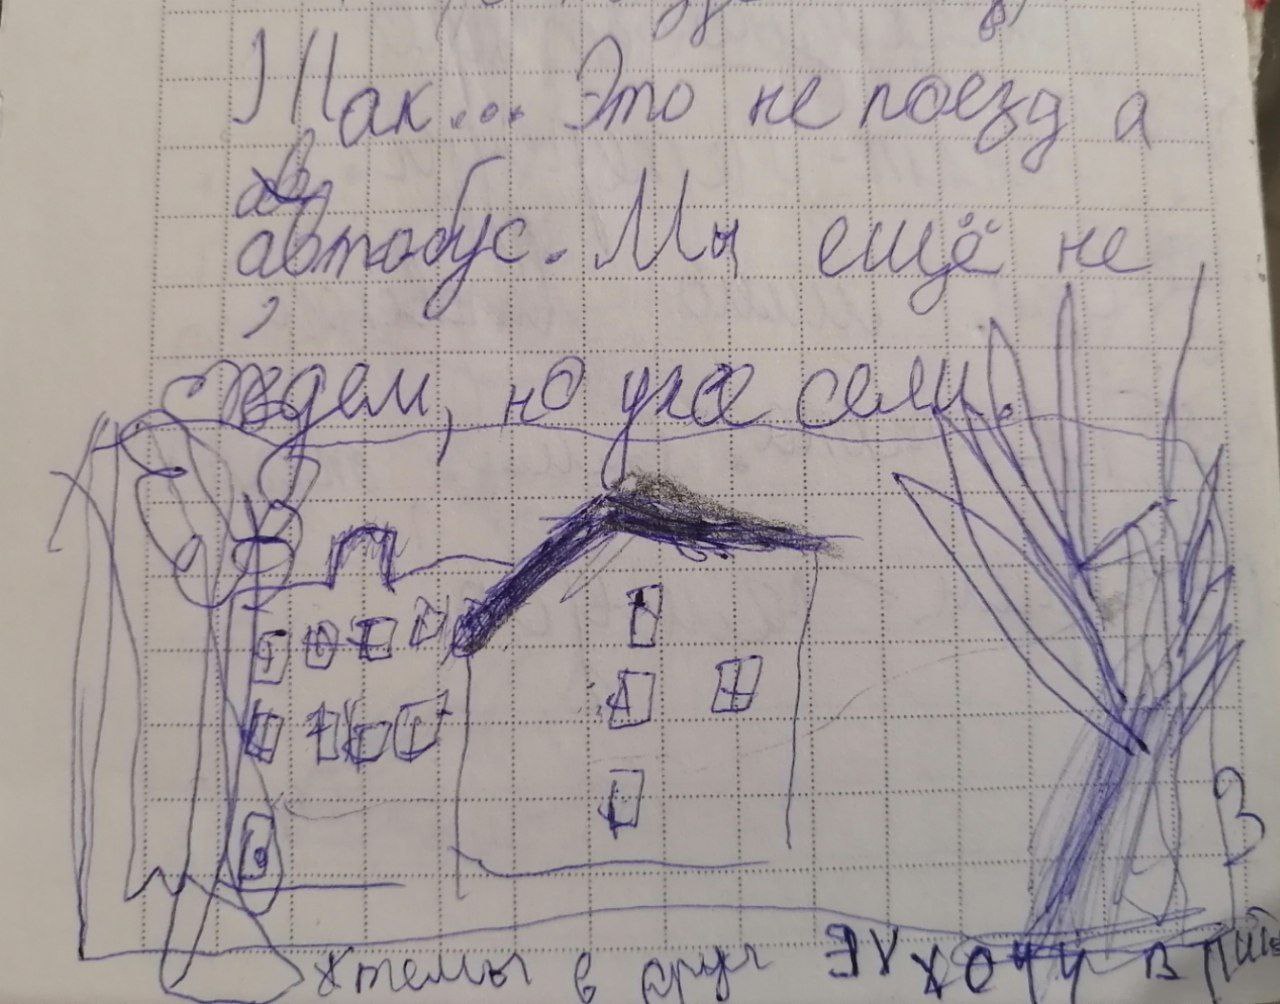 Так... Это не поезд а
автобус. Мы ещё не
едем, но уже сели.
в друг ЭХ хочу в